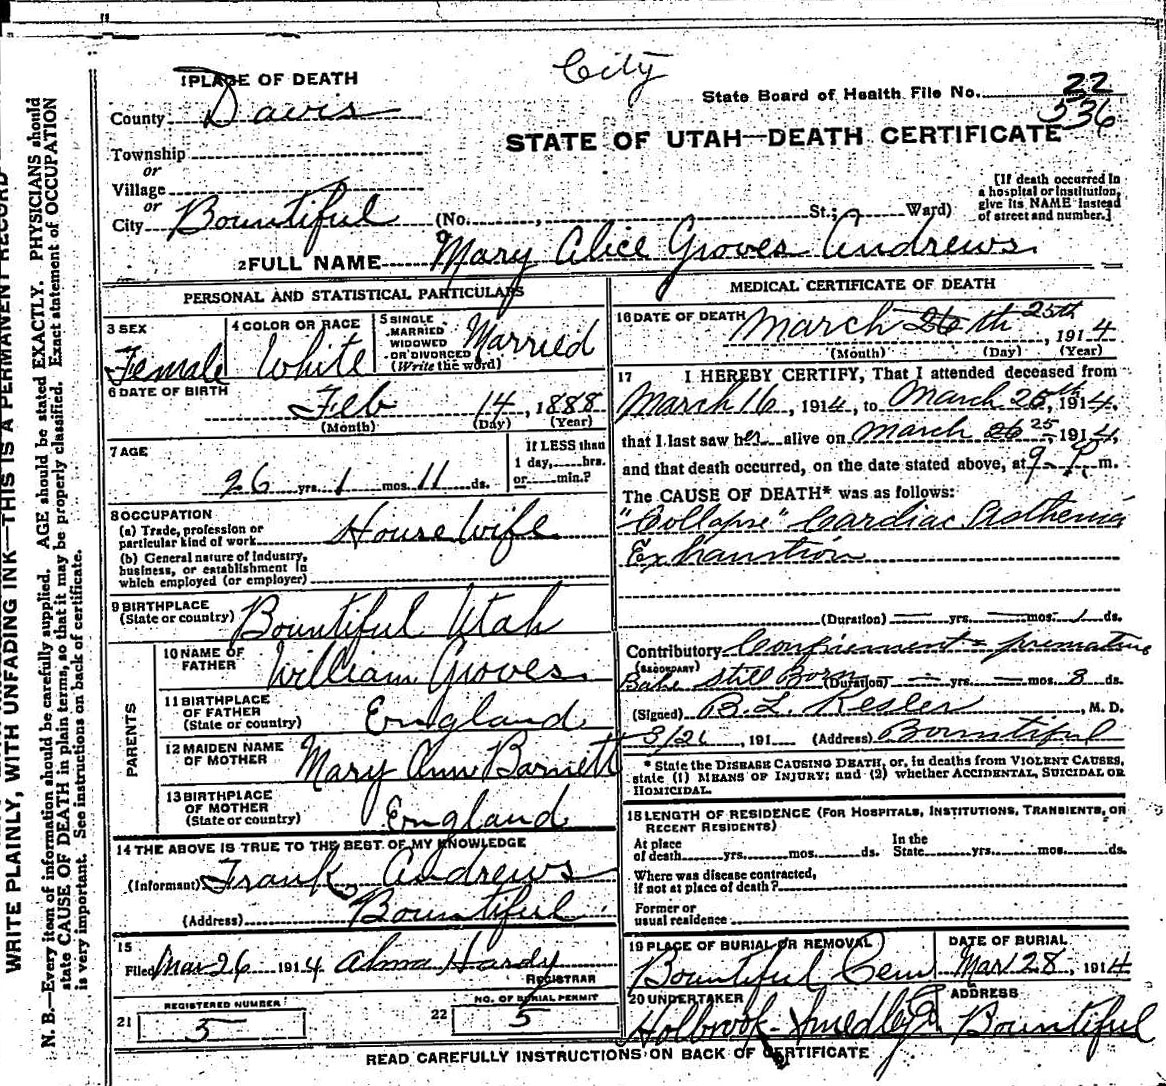 City
1 PLACE OF DEATH
County Davis
State Board of Health File No. 22
536
Township
or
Village
or
City Bountiful
STATE OF UTAH—DEATH CERTIFICATE
(No. , St.; Ward)
[If death occurred in
a hospital or institution,
give its NAME instead
of street and number.]
2 FULL NAME Mary Alice Groves Andrews
PERSONAL AND STATISTICAL PARTICULARS
3 SEX
Female
4 COLOR OR RACE
White
5 SINGLE
MARRIED
WIDOWED
OR DIVORCED
(Write the word)
Married
6 DATE OF BIRTH
Feb 14, 1888
(Month) (Day) (Year)
7 AGE
26 yrs. 1 mos. 11 ds.
If LESS than
1 day, hrs.
or min.?
8 OCCUPATION
(a) Trade, profession or
particular kind of work House wife
(b) General nature of industry,
business, or establishment in
which employed (or employer)
9 BIRTHPLACE
(State or country) Bountiful Utah
PARENTS
10 NAME OF
FATHER William Groves
11 BIRTHPLACE
OF FATHER
(State or country) England
12 MAIDEN NAME
OF MOTHER Mary Ann Barnett
13 BIRTHPLACE
OF MOTHER
(State or country) England
14 THE ABOVE IS TRUE TO THE BEST OF MY KNOWLEDGE
(Informant) Frank Andrews
(Address) Bountiful
15
Filed Mar 26 1914 Alma Hardy
REGISTRAR
REGISTERED NUMBER
21 5
NO. OF BURIAL PERMIT
22 5
MEDICAL CERTIFICATE OF DEATH
16 DATE OF DEATH
March 26th 25th, 1914
(Month) (Day) (Year)
17 I HEREBY CERTIFY, That I attended deceased from
March 16, 1914, to March 25th, 1914,
that I last saw her alive on March 26 25, 1914,
and that death occurred, on the date stated above, at 9 P m.
The CAUSE OF DEATH* was as follows:
"Collapse" Cardiac Asthenia
Exhaustion
(Duration) yrs. mos. 1 ds.
Contributory Confinement - premature
(SECONDARY)
Babe still Born (Duration) yrs. mos. 8 ds.
(Signed) B. L. Kesler, M. D.
, 191 (Address) Bountiful
* State the DISEASE CAUSING DEATH, or, in deaths from VIOLENT CAUSES,
state (1) MEANS OF INJURY; and (2) whether ACCIDENTAL, SUICIDAL OR
HOMICIDAL.
18 LENGTH OF RESIDENCE (FOR HOSPITALS, INSTITUTIONS, TRANSIENTS, OR
RECENT RESIDENTS)
At place
of death yrs. mos. ds.
In the
State yrs. mos. ds.
Where was disease contracted,
if not at place of death?
Former or
usual residence
19 PLACE OF BURIAL OR REMOVAL
Bountiful Cem
DATE OF BURIAL
Mar 28, 1914
20 UNDERTAKER
Holbrook-Smedley Co
ADDRESS
Bountiful
READ CAREFULLY INSTRUCTIONS ON BACK OF CERTIFICATE
WRITE PLAINLY, WITH UNFADING INK—THIS IS A PERMANENT RECORD
N. B.—Every item of information should be carefully supplied. AGE should be stated EXACTLY. PHYSICIANS should
state CAUSE OF DEATH in plain terms, so that it may be properly classified. Exact statement of OCCUPATION
is very important. See instructions on back of certificate.